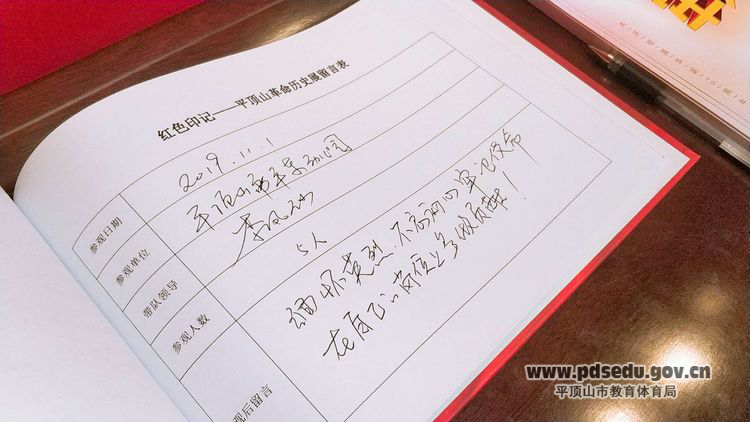 红色印记——平顶山革命历史展留言表
参观日期 2019.11.1
参观单位 平顶山市
带队领导
参观人数 5人
观后留言 缅怀先烈,不忘初心,牢记使命
在自己岗位上多做贡献!
www.pdsedu.gov.cn
平顶山市教育体育局